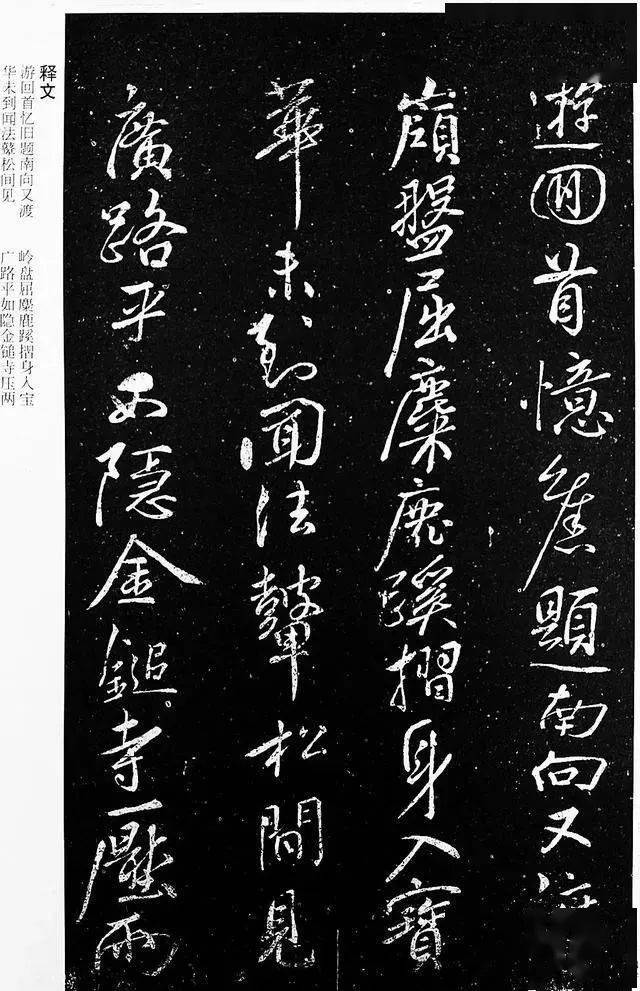 遊回首憶舊題南向又渡
嶺盤屈麋鹿蹊摺身入寶
華未到聞法鼙松間見
廣路平如隱金鎚寺壓兩
释文
游回首忆旧题南向又渡
岭盘屈麋鹿蹊摺身入宝
华未到闻法鼙松间见
广路平如隐金鎚寺压两